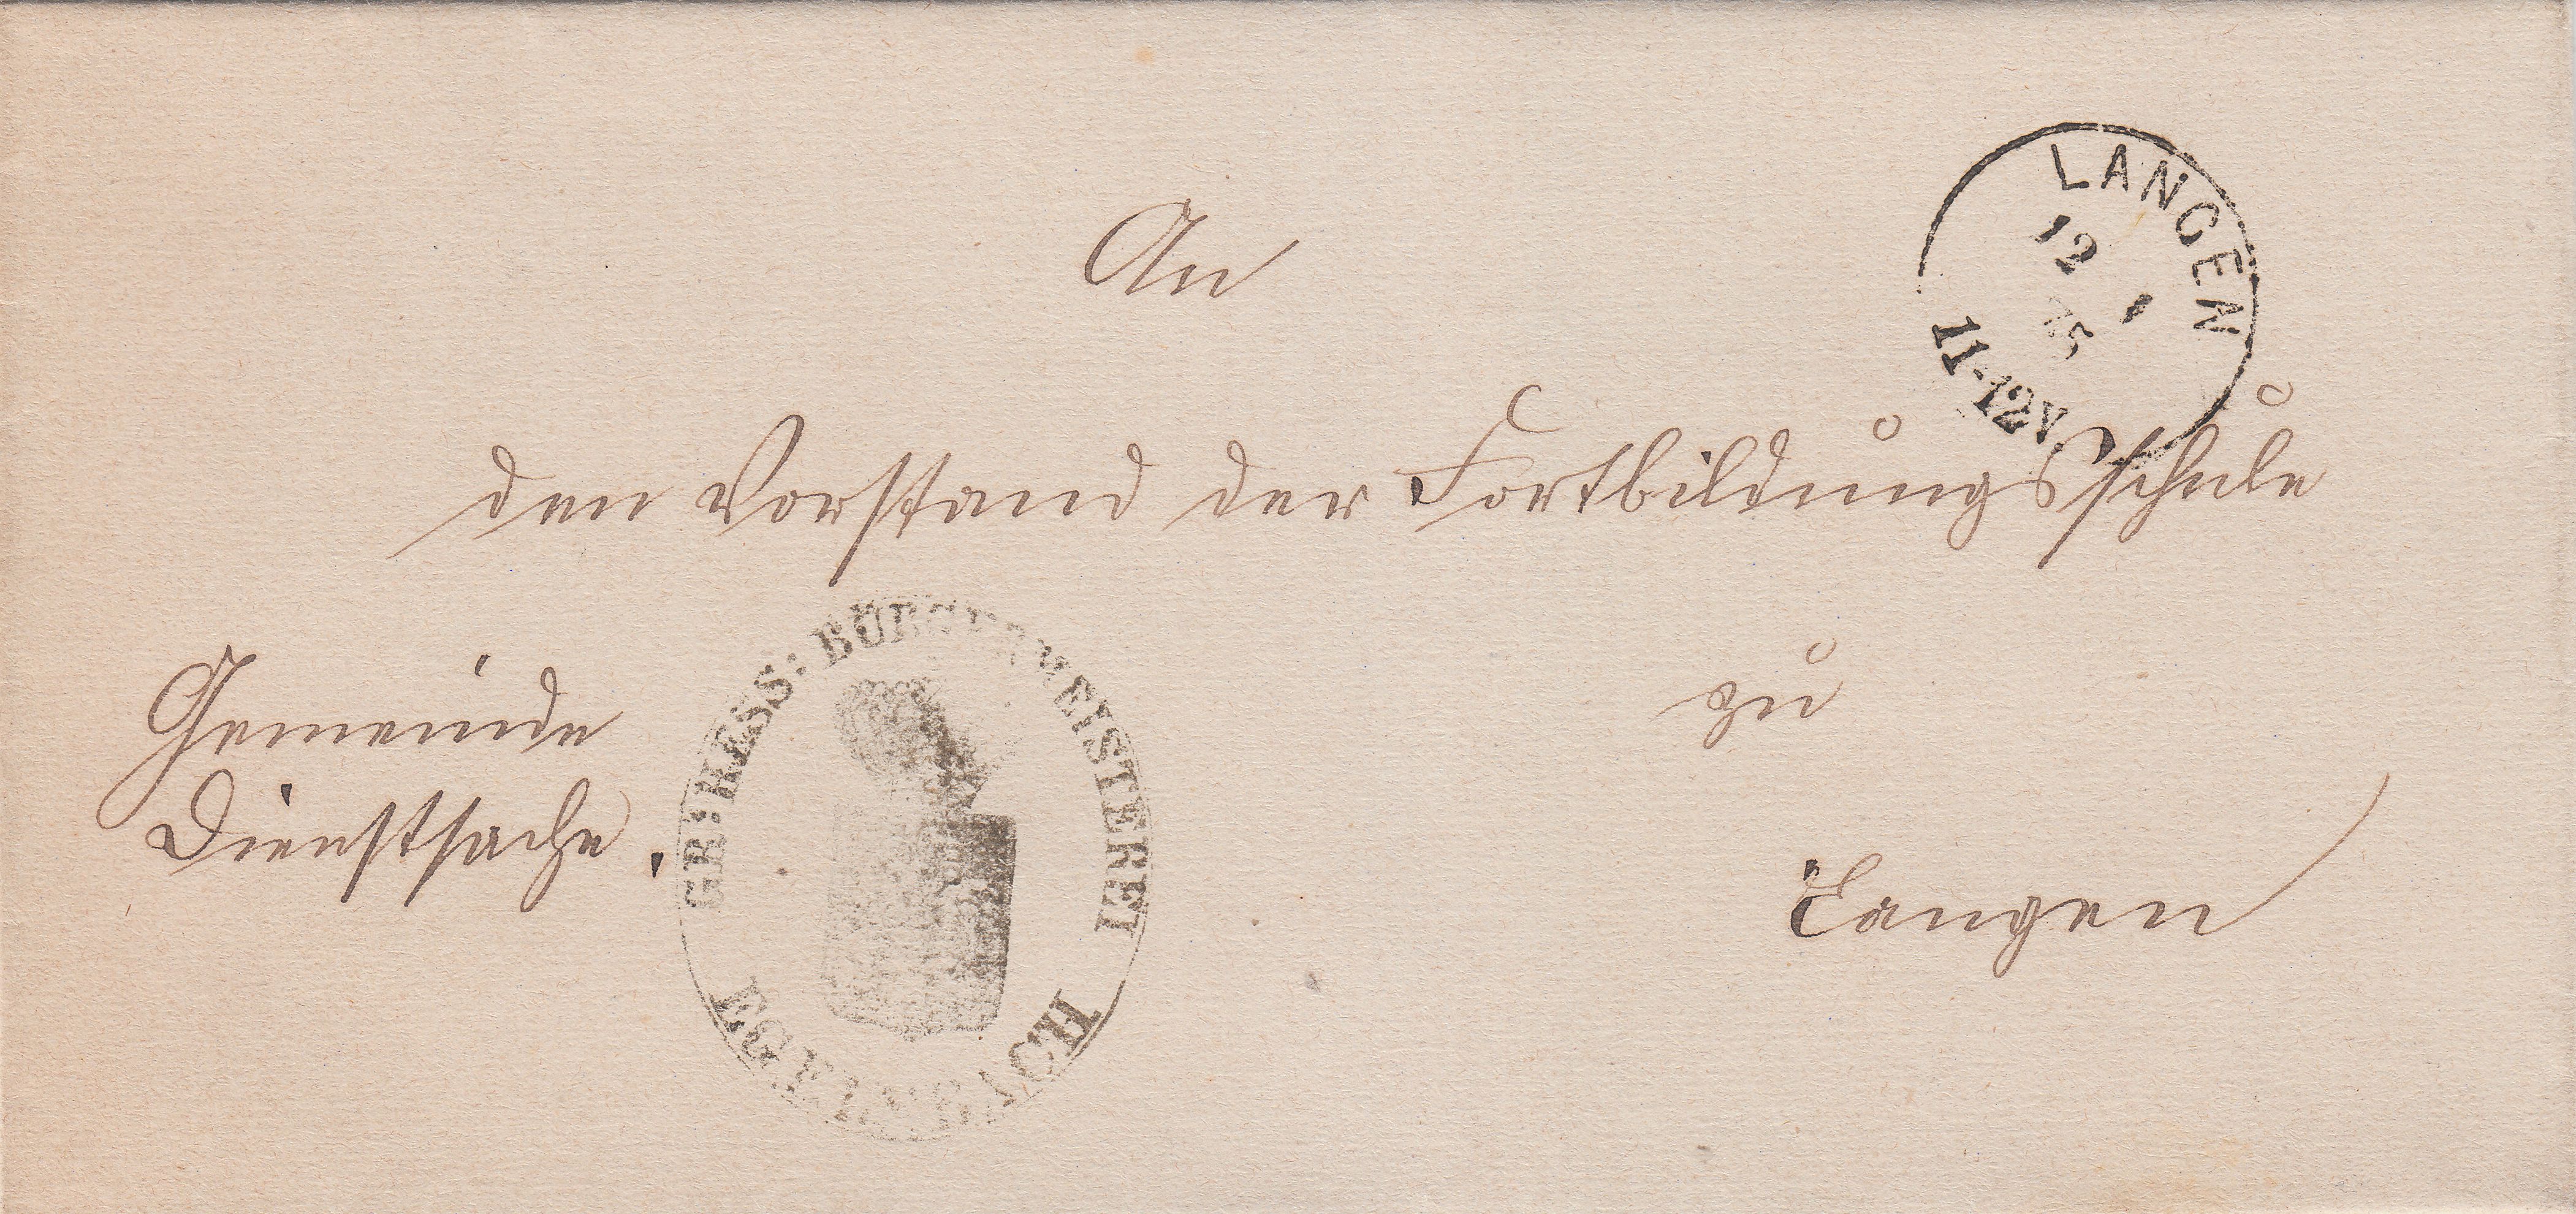 An
den Vorstand der Fortbildungsschule
zu
Langen
Gemeinde
Dienstsache.
LANGEN
12
1
75
11-12V.
GR: HESS: BÜRGERMEISTEREI